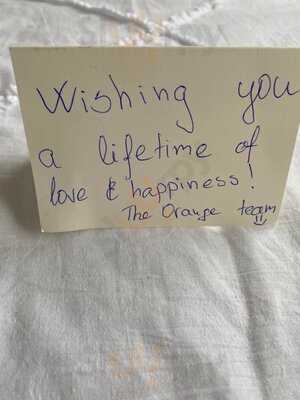 Wishing you
a lifetime of
love & happiness!
The Orange team